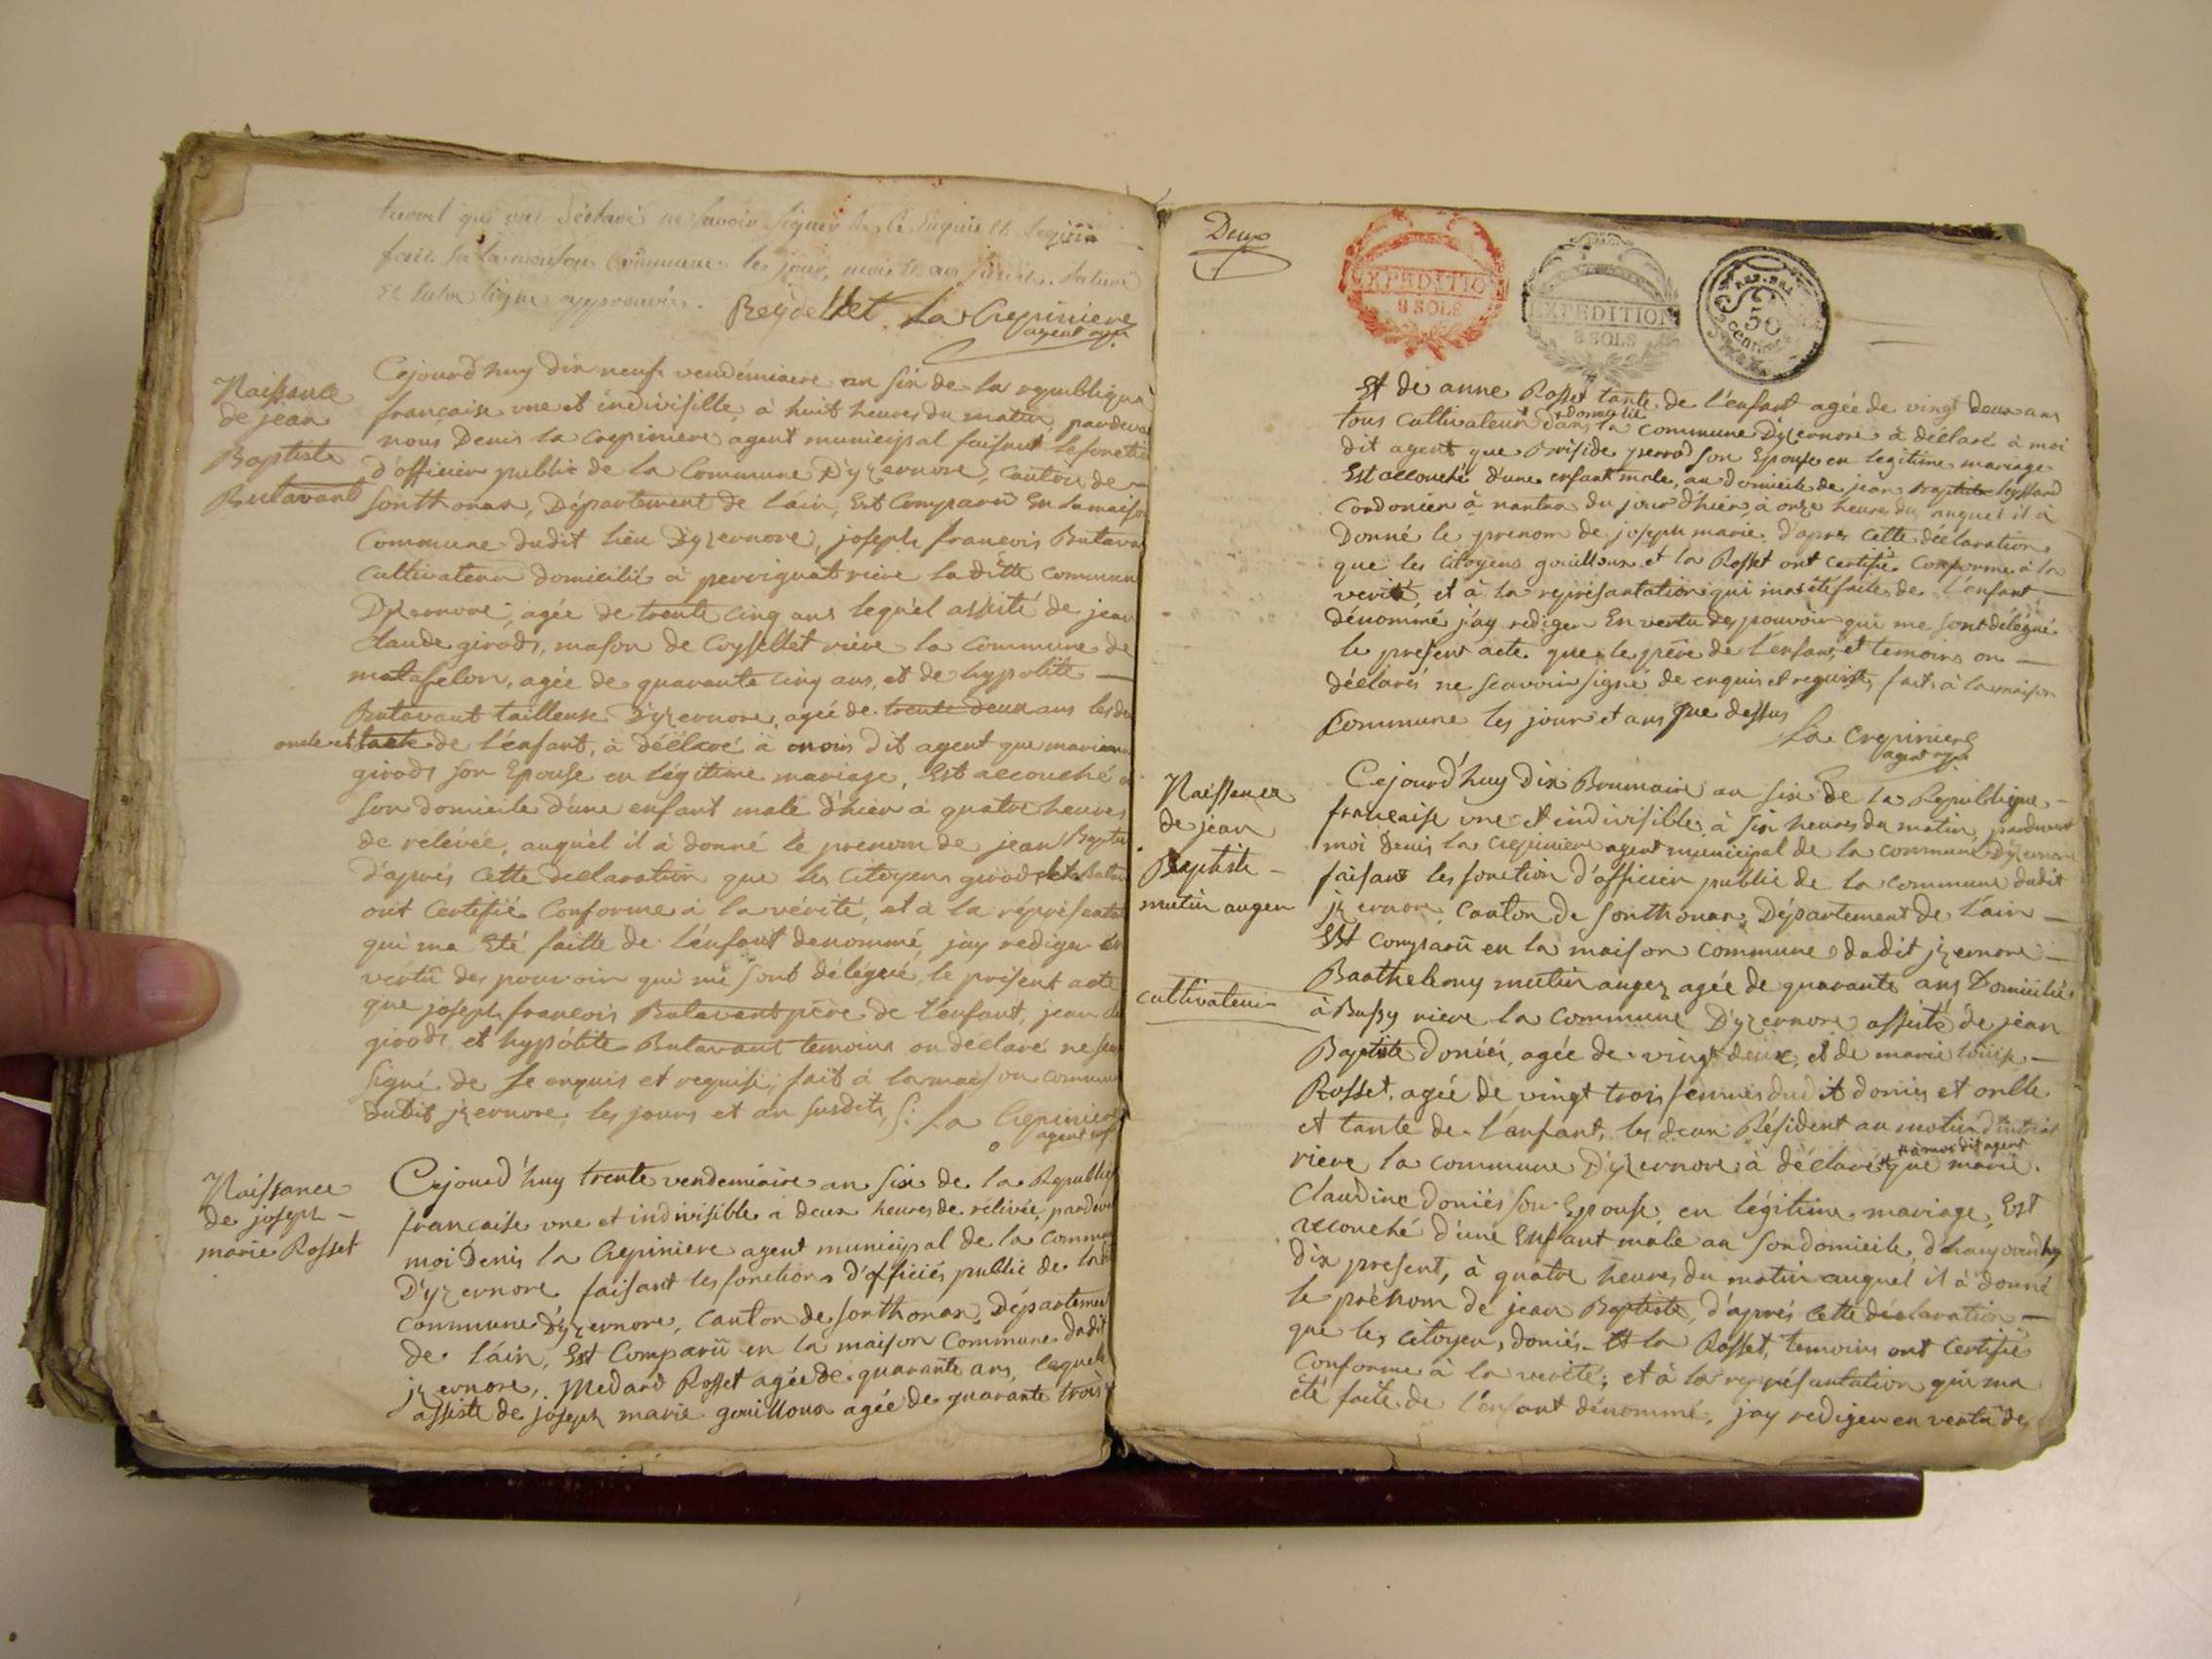 qui ont déclaré ne savoir signer de ce enquis et requis
fait en la maison commune les jour, mois et an susdits
et autre ligne approuvée. Reydellet La Crepiniere
agent mpl
Naissance
de jean
Baptiste
Butavant
Cejourd'huy dix neuf vendémiaire an six de la republique
francaise une et indivisible, à huit heures du matin, pardeva
nous Denis la Crepiniere agent municipal faisant le foncti
d'officier public de la Commune D'yzernore, canton de
Sonthonax, Département de l'ain, Est Comparu En la maiso
Commune dudit lieu D'yzernore, joseph francois Butava
Cultivateur domicilié à perrignat riere la ditte commun
D'yzernore, agée de trente cinq ans lequel assisté de jean
Claude girods, mason de Coysellet riere la commune de
matafelon, agée de quarante cinq ans, et de hypolite
Butavant tailleuse D'yzernore, agée de trente deux ans les de
oncle et tante de l'enfant, à déclaré à mois dit agent que marianne
girods son Epouse en légitime mariage, Est accouché a
son domicile d'une enfant male d'hier à quatre heures
de relévée, auquel il à donné le prenom de jean Baptis
d'aprés cette declaration que les Citoyens girods et la Buta
ont Certifié Conforme à la vérité, et à la réprésentat
qui ma Eté faitte de l'enfant denommé, jay rediger En
vertû des pouvoir qui me sont délégué, le présent acte
que joseph francois Butavant père de l'enfant, jean cl
girods, et hypolite Butavant temoins on déclaré ne sca
signé de ce enquis et requise, fait à la maison commune
dudit jzernore, les jours et an susdits, S: La Crepiniere
agent mpl
Naissance
de joseph
marie Rosset
Cejourd'huy trente vendemiaire an six de la Republiq
francaise une et indivisible a deux heures de relévée, pardeva
moi Denis la Crepiniere agent municipal de la Commu
D'yzernore faisant les fonctions d'officiés public de ladi
Commune D'yzernore, Canton de Sonthonax, Départemen
de l'ain, Est Comparu en la maison Commune dudit
jzernore, Medard Rosset agée de quarante ans, lequel
assiste de joseph marie gouilloux agée de quarante trois
Deux
EXPEDITION
8 SOLS
EXPEDITION
8 SOLS
REP. FRA
50
centimes
Et de anne Rosset tante de l'enfant agée de vingt deux ans
domicilié
tous cultivateur dans la commune D'yzernore à déclaré à moi
dit agent que Briside perrod son Epouse en legitime mariage
Est accouché d'une enfant male, au domicile de jean Baptiste
Cordonier à nantua du jour d'hier, à onze heure du auquel il à
Donné le prenom de joseph marie, d'apres cette déclaration
que les Citoyens gouilloux et la Rosset ont certifié Conforme à la
verité, et à la représantation qui ma été faite de l'enfant
dénommé j'ay rediger En vertu des pouvoir qui me sont délégué
le present acte que le père de l'enfant, et temoins on
déclarés ne scavoir signé de enquis et requist, fait à la maison
Commune les jour et ans que dessus
La Crepiniere
agent mpl
Naissance
de jean
Baptiste
mutin auger
cultivateur
Cejourd'huy Dix Brumaire an six de la Republique
francaise une et indivisible, à six heures du matin, pardevant
moi Denis la Crepiniere agent municipal de la commune D'yzernore
faisant les fonction d'officier public de la commune dudit
jzernore, Canton de Sonthonax, Département de l'ain
Est Comparû en la maison commune dudit jzernore
Baathelemy mutin auger agée de quarante ans Domicilié
à Bussy riere la commune D'yzernore assisté de jean
Baptiste doniés, agée de vingt deux, et de marie louise
Rosset, agée de vingt trois femmes dudit doniés et onlle
et tante de l'anfant, les deux Résident au
à moi dit agent
riere la commune D'yzernore à déclaré que marie
Claudine doniés son Epouse, en légitime mariage, Est
accouché d'une Enfant male au son domicile, d'haujourdhuy
dix present, à quatre heures du matin auquel il à donné
le prénom de jean Baptiste, d'aprés cette déclaration
que les citoyen, doniés et la Rosset, temoins ont certifié
Conforme à la verité, et à la représantation qui ma
été faite de l'enfant dénommé, jay rediger en vertû des